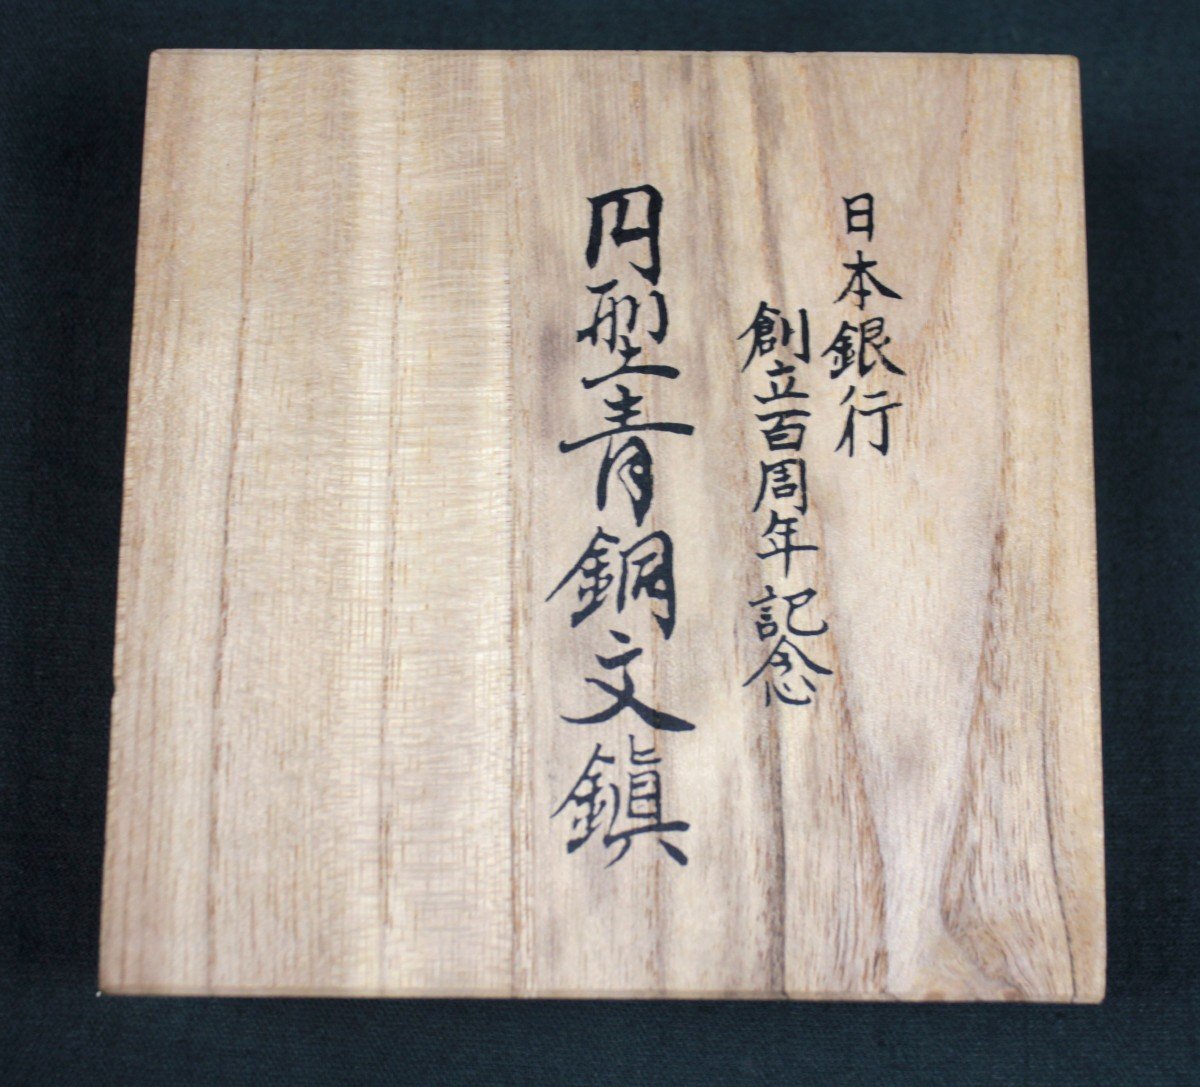 日本銀行
創立百周年記念
円型青銅文鎮